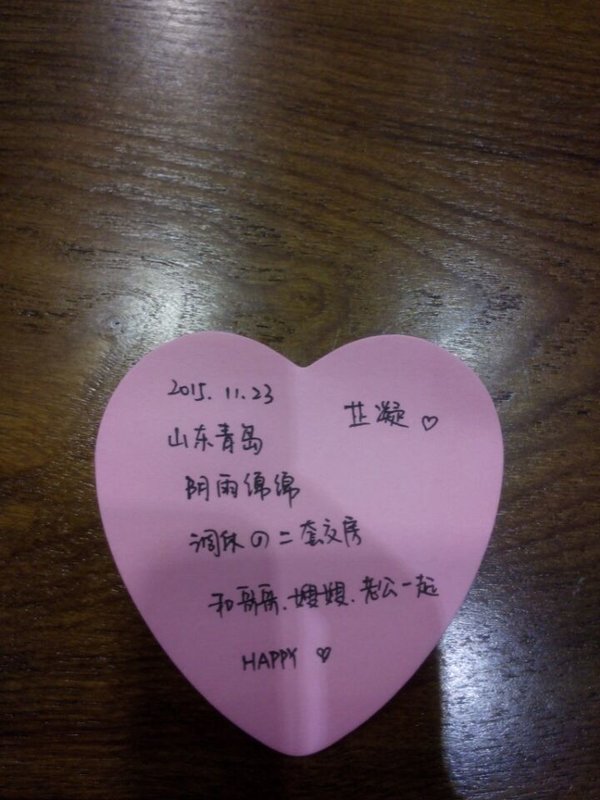 2015.11.23
芷凝♡
山东青岛
阴雨绵绵
调休の二套文房
和哥哥、嫂嫂、老公一起
HAPPY ♡